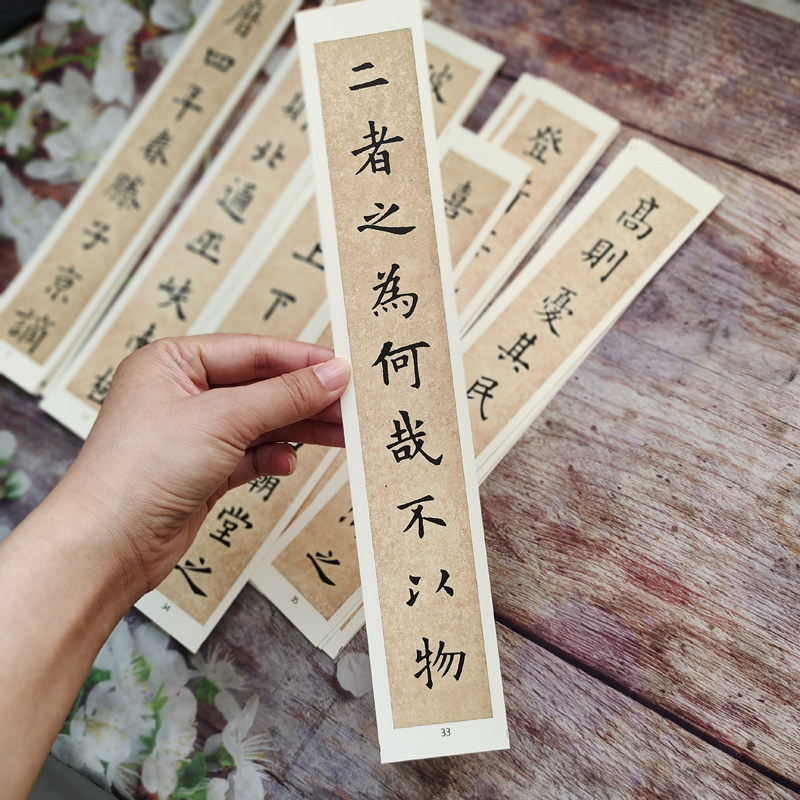 曆四年春滕子京謫
北通巫峽南極
上下
堂之
34
二者之為何哉不以物
33
之
35
喜
登
高則憂其民